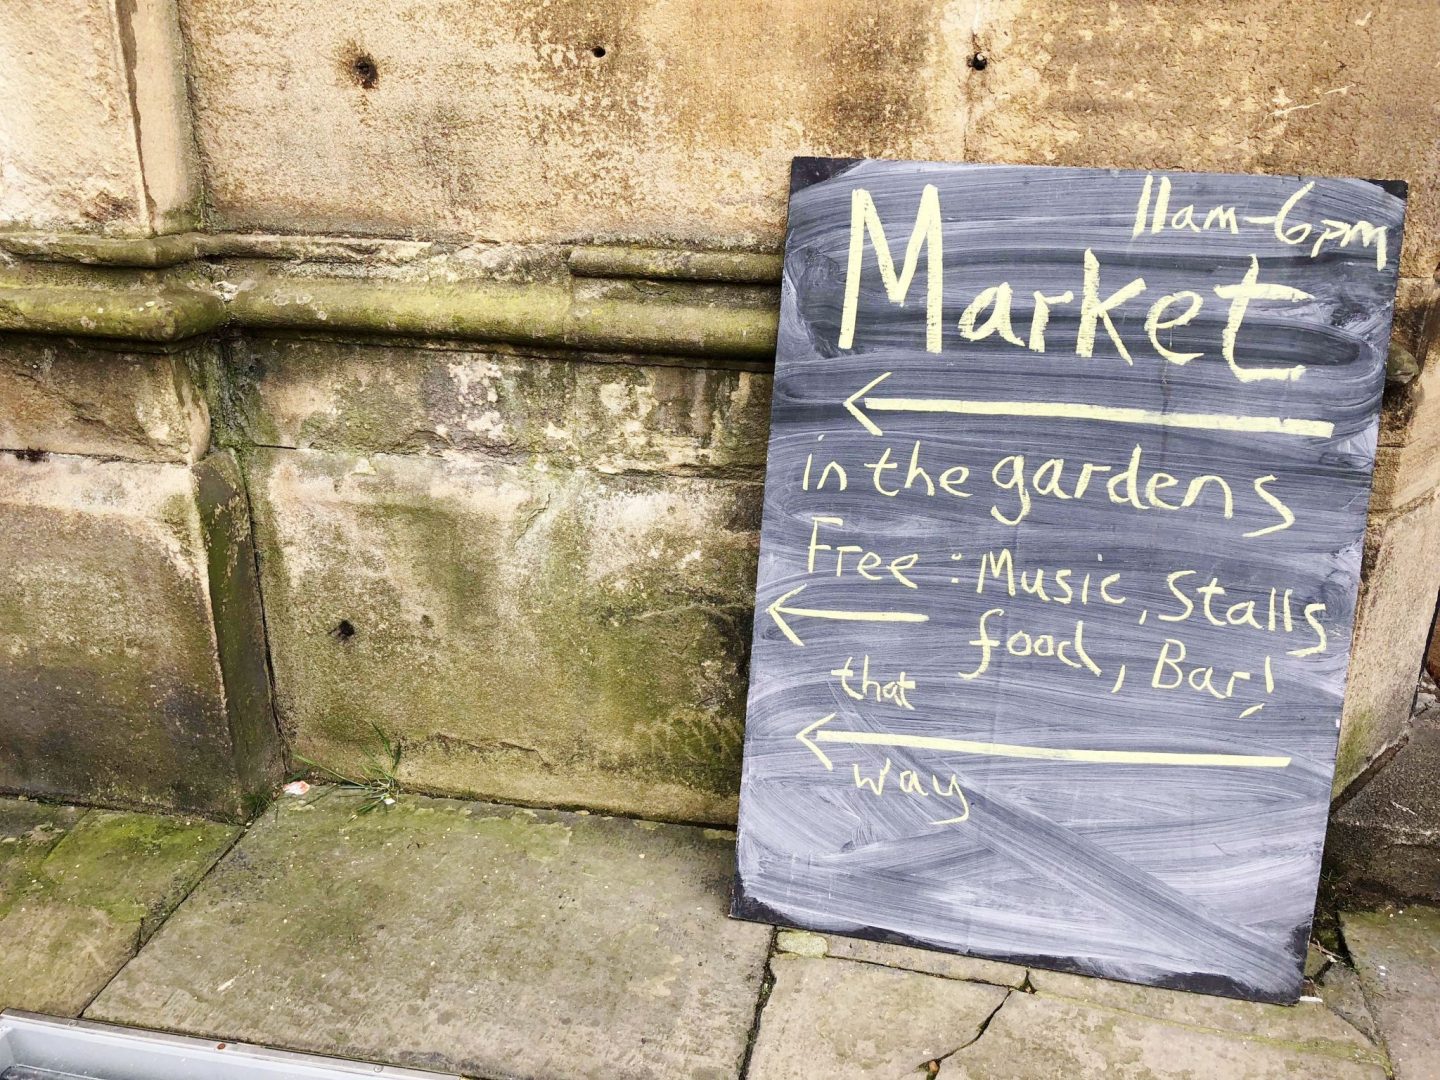 11am-6pm
Market
in the gardens
Free: Music, Stalls
food, Bar!
that
way